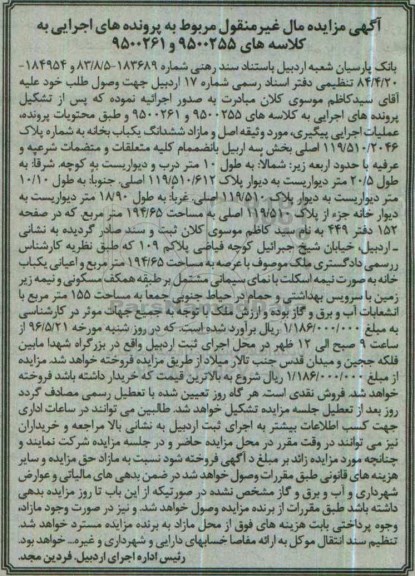 آگهی مزایده مال غیرمنقول مربوط به پرونده های اجرایی به
کلاسه های ۹۵۰۰۲۵۵ و ۹۵۰۰۲۶۱
بانک پارسیان شعبه اردبیل باستناد سند رهنی شماره ۱۸۳۶۸۹-۸۳/۸/۵ و ۱۸۴۹۵۴-
۸۴/۴/۲۰ تنظیمی دفتر اسناد رسمی شماره ۱۷ اردبیل جهت وصول طلب خود علیه
آقای سیدکاظم موسوی کلان مبادرت به صدور اجرائیه نموده که پس از تشکیل
پرونده های اجرایی به کلاسه های ۹۵۰۰۲۵۵ و ۹۵۰۰۲۶۱ و طبق محتویات پرونده،
عملیات اجرایی پیگیری، مورد وثیقه اصل و مازاد ششدانگ یکباب بخانه به شماره پلاک
۱۱۹/۵۱۰/۲۰۴۶ اصلی بخش سه اربیل بانضمام کلیه متعلقات و منضمات شرعیه و
عرفیه با حدود اربعه زیر: شمالا: به طول ۱۰ متر درب و دیواریست به کوچه. شرقا: به
طول ۲۰/۵ متر دیواریست به دیوار پلاک ۱۱۹/۵۱۰/۶۱۲ اصلی. جنوبا: به طول ۱۰/۱۰
متر دیواریست به دیوار پلاک ۱۱۹/۵۱۰ اصلی. غربا: به طول ۱۸/۹۰ متر دیواریست به
دیوار خانه جزء از پلاک ۱۱۹/۵۱۰ اصلی به مساحت ۱۹۴/۶۵ متر مربع که در صفحه
۱۵۲ دفتر ۴۴۹ به نام سید کاظم موسوی کلان ثبت و سند صادر گردیده به نشانی
ـ اردبیل، خیابان شیخ جبرائیل کوچه فیاضی پلاکم ۱۰۹ که طبق نظریه کارشناس
رسمی دادگستری ملک موصوف با عرصه به مساحت ۱۹۴/۶۵ متر مربع و اعیانی یکباب
خانه به صورت نیمه اسکلت با نمای سیمانی مشتمل بر طبقه همکف مسکونی و نیمه زیر
زمین با سرویس بهداشتی و حمام در حیاط جنوبی جمعا به مساحت ۱۵۵ متر مربع با
انشعابات آب و برق و گاز بوده و ارزش ملک با توجه به جمیع جهات موثر در کارشناسی
به مبلغ ۱/۱۸۶/۰۰۰/۰۰۰ ریال برآورد شده است، که در روز شنبه مورخه ۹۶/۵/۲۱ از
ساعت ۹ صبح الی ۱۲ ظهر در محل اجرای ثبت اردبیل واقع در بزرگراه شهدا مابین
فلکه ججین و میدان قدس جنب تالار میلاد از طریق مزایده فروخته خواهد شد. مزایده
از مبلغ ۱/۱۸۶/۰۰۰/۰۰۰ ریال شروع به بالاترین قیمت که خریدار داشته باشد فروخته
خواهد شد. فروش نقدی است. هر گاه روز تعیین شده با تعطیل رسمی مصادف گردد
روز بعد از تعطیل جلسه مزایده تشکیل خواهد شد. طالبین می توانند در ساعات اداری
جهت کسب اطلاعات بیشتر به اجرای ثبت اردبیل به نشانی بالا مراجعه و خریداران
نیز می توانند در وقت مقرر در محل مزایده حاضر و در جلسه مزایده شرکت نمایند و
چنانچه مورد مزایده زائد بر مبلغ د آگهی فروخته شود نسبت به مازاد حق مزایده و سایر
هزینه های قانونی طبق مقررات وصول خواهد شد در ضمن بدهی های مالیاتی و عوارض
شهرداری و آب و برق و گاز مشخص نشده در صورتیکه از این باب تا روز مزایده بدهی
داشته باشد طبق مقررات از برنده مزایده وصول خواهد شد. و نیز در صورت وجود مازاد،
وجوه پرداختی بابت هزینه های فوق از محل مازاد به برنده مزایده مسترد خواهد شد.
تنظیم سند انتقال موکل به ارائه مفاصا حسابهای دارایی و شهرداری و غیره... خواهد بود.
رئیس اداره اجرای اردبیل. فردین مجد.